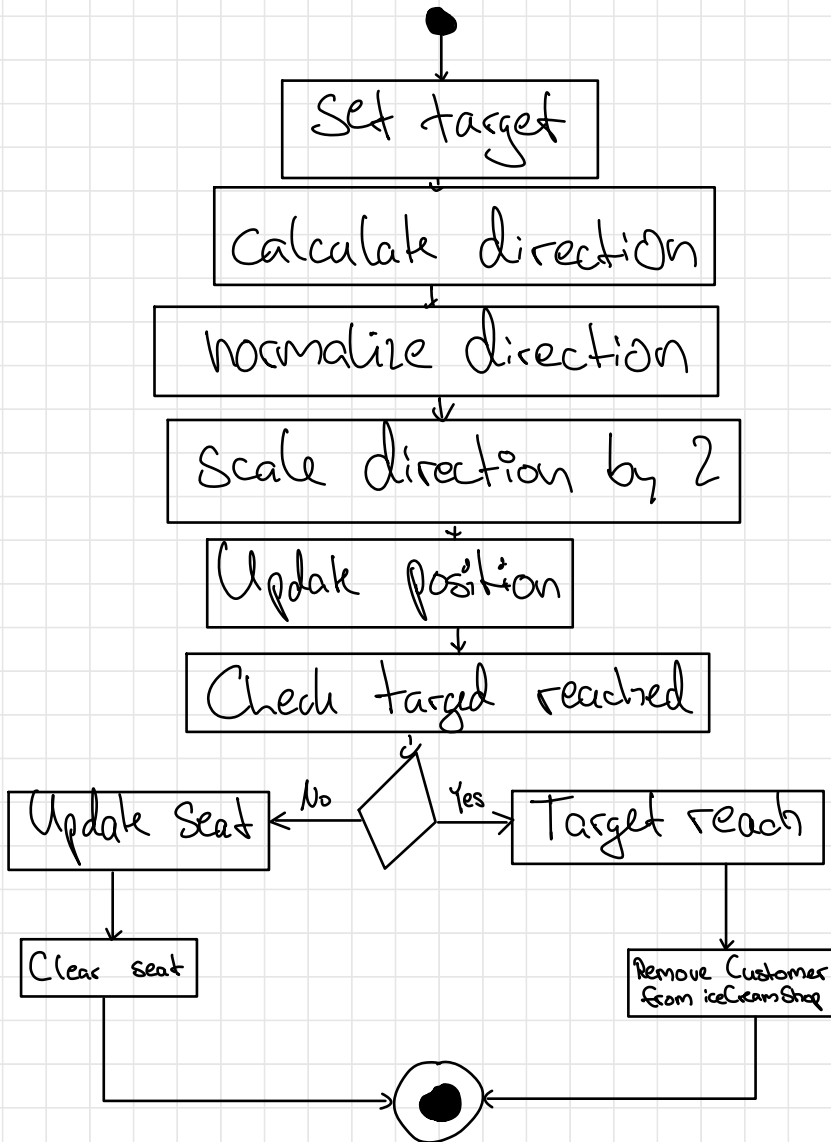 Set target
Calculate direction
normalize direction
Scale direction by 2
Update position
Check target reached
No
Yes
Update Seat
Target reach
Clear seat
Remove Customer
from iceCreamShop